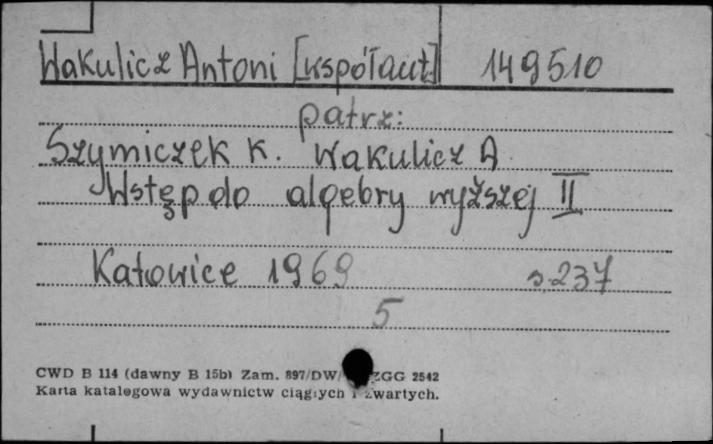 Wakulicz Antoni [współaut.] 149510
patrz:
Szymiczek K. Wakulicz A.
Wstęp do algebry wyższej II
Katowice 1969 s.237
5
CWD B 114 (dawny B 15b) Zam. 897/DW/ ZGG 2542
Karta katalogowa wydawnictw ciągłych i zwartych.